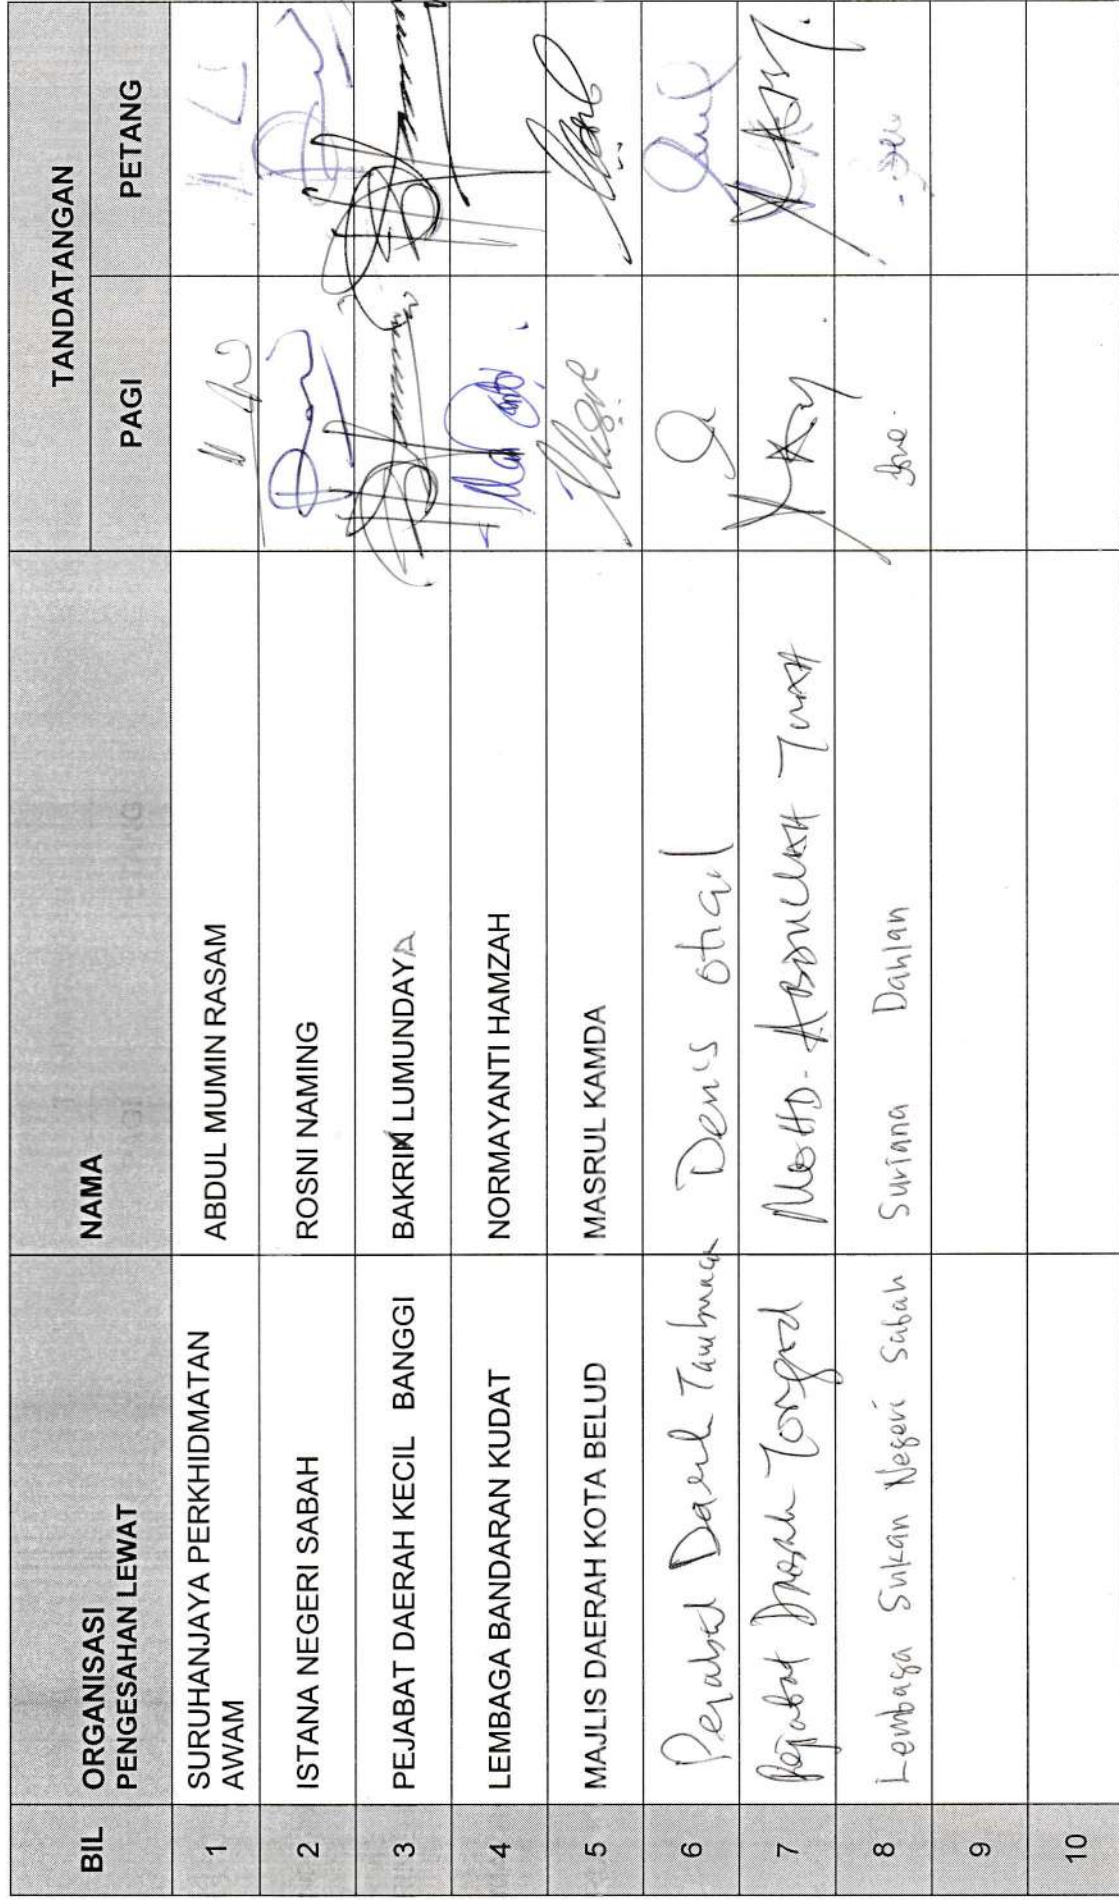 BIL ORGANISASI PENGESAHAN LEWAT NAMA TANDATANGAN
PAGI PETANG
1 SURUHANJAYA PERKHIDMATAN AWAM ABDUL MUMIN RASAM
2 ISTANA NEGERI SABAH ROSNI NAMING
3 PEJABAT DAERAH KECIL BANGGI BAKRI LUMUNDAYA
4 LEMBAGA BANDARAN KUDAT NORMAYANTI HAMZAH
5 MAJLIS DAERAH KOTA BELUD MASRUL KAMDA
6 Pejabat Daerah Tambunan Denis Otigil
7 Pejabat Daerah Tongod MOHD. ABDULLAH TUAH
8 Lembaga Sukan Negeri Sabah Suriana Dahlan
9
10